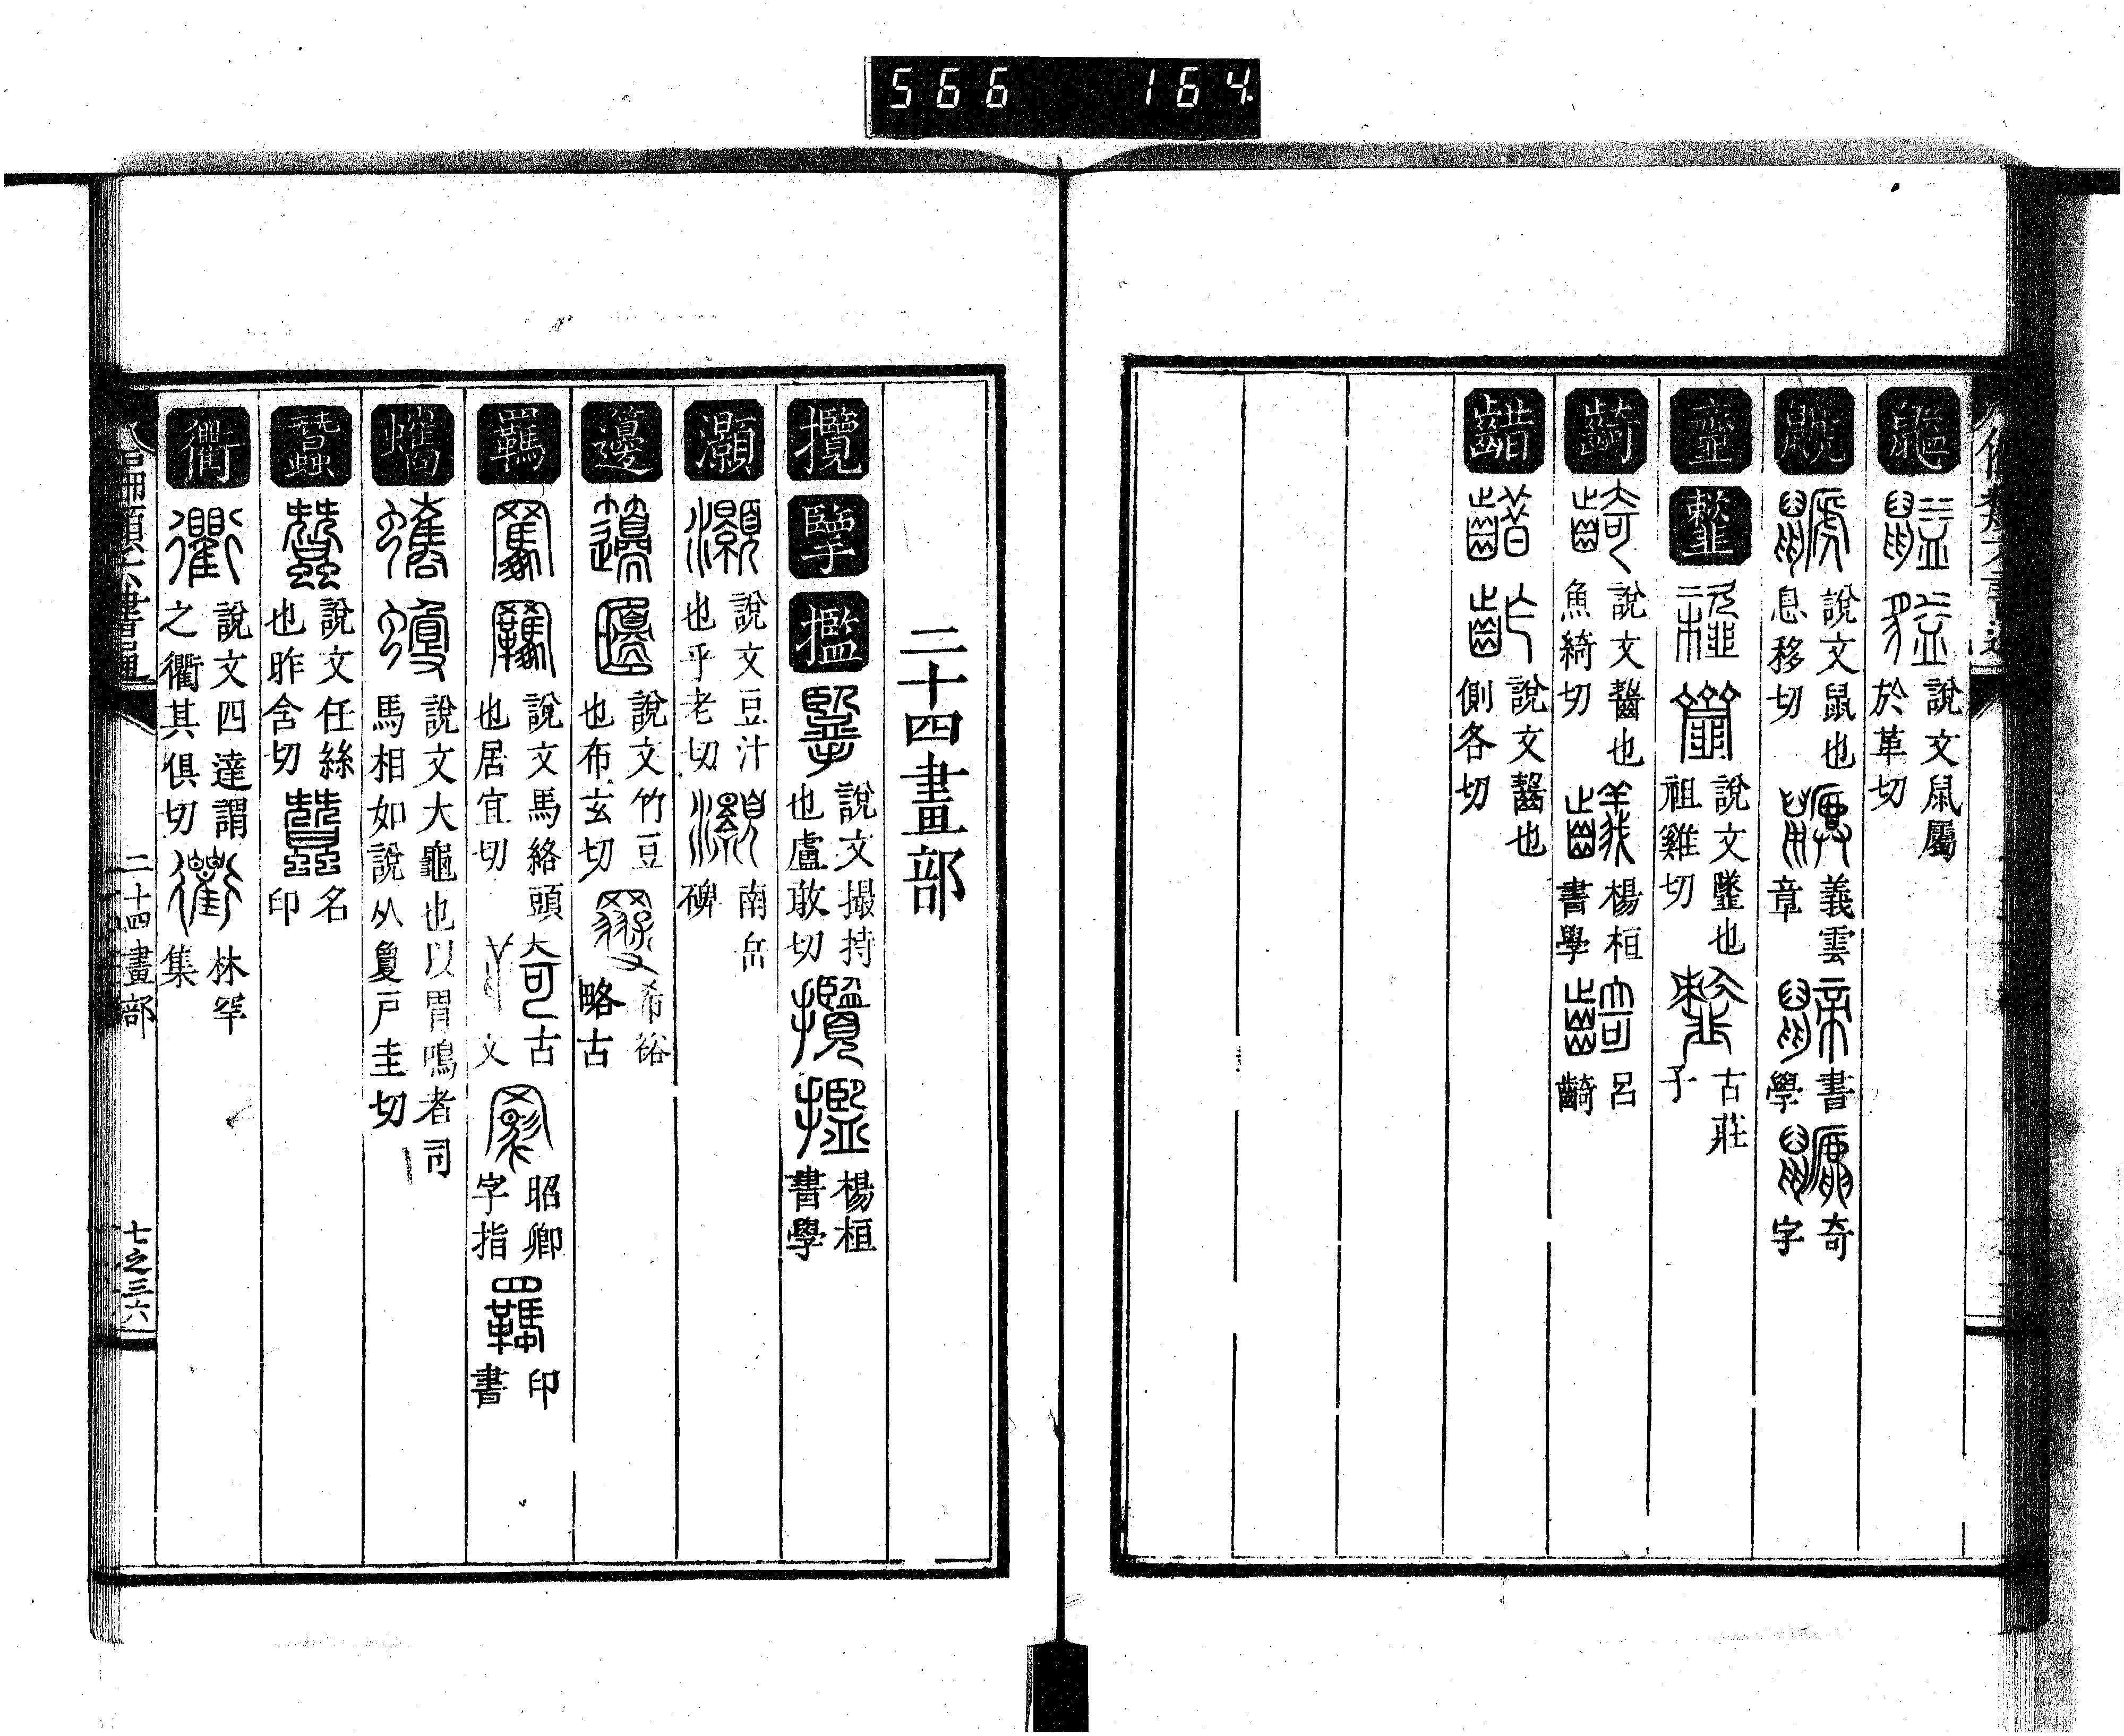 566 164.
說文鼠屬
於革切
說文鼠也
息移切
義雲
章
書
學
奇
字
說文墜也
祖雞切
古莊
子
齮
說文齧也
魚綺切
楊桓
書學
呂
齮
齰
說文齧也
側各切
二十四畫部
攬
擥
㩜
說文撮持
也盧敢切
楊桓
書學
灝
說文豆汁
也乎老切
南岳
碑
籩
說文竹豆
也布玄切
希裕
略古
羈
說文馬絡頭
也居宜切
古
文
昭卿
字指
印
書
蠵
說文大龜也以胃鳴者司
馬相如說从敻戶圭切
蠶
說文任絲
也昨含切
名
印
衢
說文四達謂
之衢其俱切
林罕
集
二十四畫部
七之三六